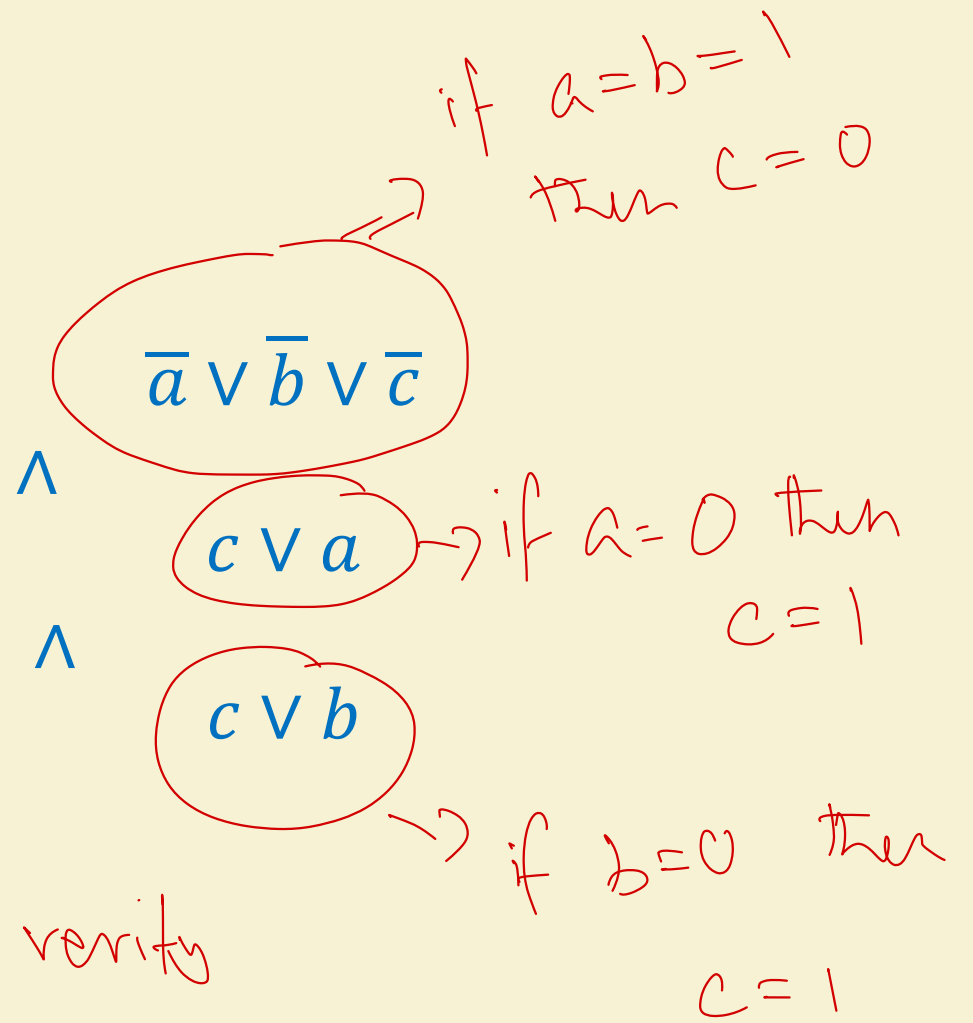 if a=b=1
then c=0
a̅ ∨ b̅ ∨ c̅
∧
c ∨ a → if a=0 then
c=1
∧
c ∨ b
→ if b=0 then
verify
c=1